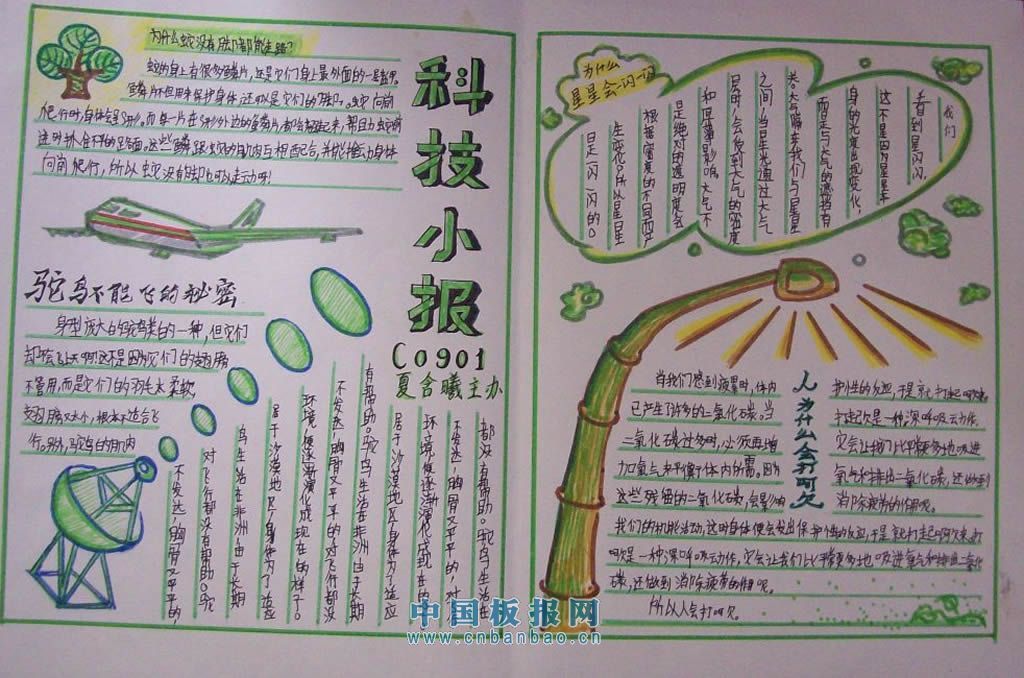 为什么蛇没有脚都能走路？
蛇的身上有很多鳞片，这是它们身上最外面的一层
鳞片不但用来保护身体，还可以是它们的
向前爬行，所以蛇没有脚也可以走动呀！
科技小报
C0901
夏含曦主办
驼鸟不能飞的秘密
身型庞大的鸵鸟类的一种，但它们
却
不管用，而是它们的羽毛太柔软，
翅膀太小，根本不适合飞
行。另外，驼鸟的肌肉
不发达，胸骨又平平的
对飞行都没有帮助。驼
鸟生活在非洲由于长期
居于沙漠地区身体为了适应
环境，便逐渐演化成现在的样子。
不发达，胸骨又平平的对飞行都没
有帮助。驼鸟生活在非洲由于长期
居于沙漠地区身体为了适应
环境便逐渐演化成现在的
不发达，胸骨又平平的，对
都没有帮助。驼鸟生活在
为什么
星星会一闪一闪
我们
看到星闪闪，
这不是因为星星本
身的光度出现变化，
而是与大气的遮挡有
关。大气隔在我们与星星
之间，当星光通过大气
层时，会受到大气的密度
和厚薄影响。大气不
是绝对的透明度会
根据密度的不同而产
生变化。所以星星
是一闪一闪的。
人为什么会打呵欠
当我们感到疲累时，体内
已产生了许多的二氧化碳。当
二氧化碳过多时，必须再增
加氧气来平衡体内所需。因为
这些残留的二氧化碳，会影响
我们的机能活动，这时身体便会发出保护性的反应，于是就打起呵欠来。打
呵欠是一种深呼吸动作，它会让我们比平常更多地吸进氧气和排出二氧化
碳，还做到消除疲劳的作用呢。
所以人会打呵欠。
护性的反应，于是就打起呵欠来
打起欠是一种深呼吸动作。
它会让我们比平常更多地吸进
氧气和排出二氧化碳，还做到
消除疲劳的作用呢。
中国板报网
www.cnbanbao.cn